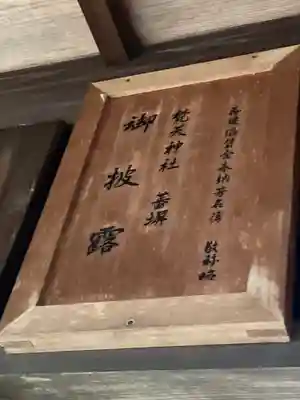 御披露
梵天神社 葺塀
普請協賛金奉納芳名簿 敬称略